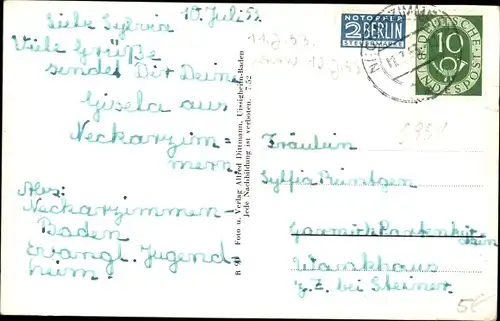 10. Juli 53.
Liebe Sylvia
Viele Grüße
sendet Dir Deine
Gisela aus
Neckarzim-
mern.
Abs:
Neckarzimmern-
Baden
Evangl. Jugend
heim.
B 90 Foto u. Verlag Alfred Dittmann, Uissigheim-Baden
Jede Nachbildung ist verboten. 7.52
NOTOPFER
2 BERLIN
STEUERMARKE
DEUTSCHE
10
BUNDESPOST
11.7.53.
Fräulein
Sylvia
Garmisch Partenkir
chen
Krankhaus
z. Z. bei Steiner